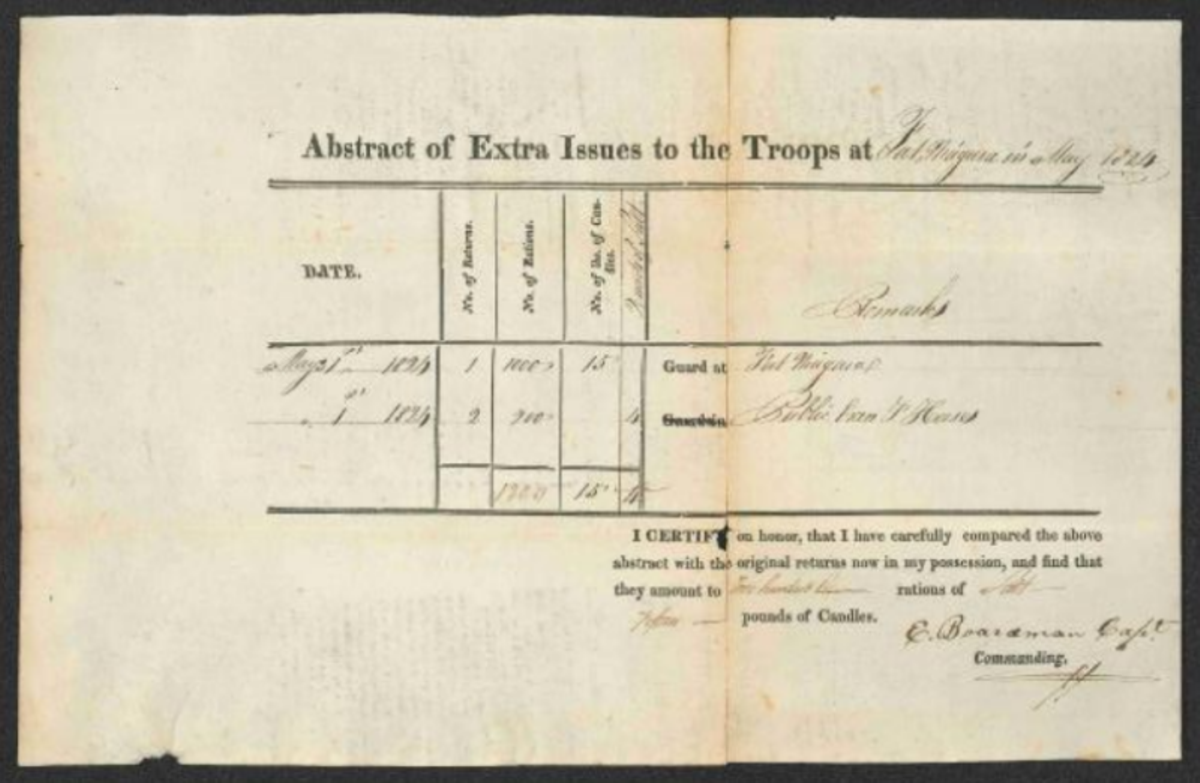 Abstract of Extra Issues to the Troops at Fort Niagara in May 1824
DATE.
No. of Returns.
No. of Rations.
No. of lbs. of Candles.
Quarts of Salt
Remarks
May 31st 1824 1 1000 15 Guard at Fort Niagara
" 1st 1824 2 200 4 Public Oxen & Horses
15 4
I CERTIFY on honor, that I have carefully compared the above
abstract with the original returns now in my possession, and find that
they amount to rations of Salt
Fifteen pounds of Candles.
E. Boardman Capt.
Commanding.